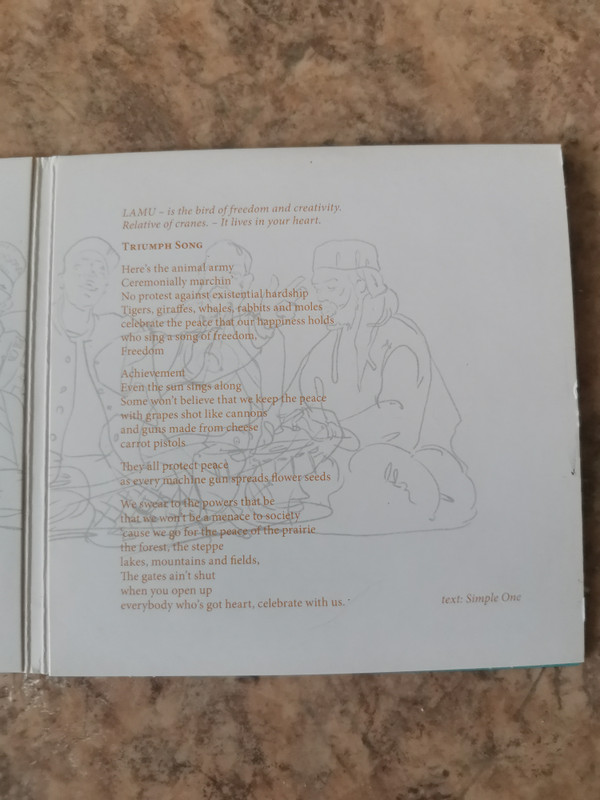 LAMU – is the bird of freedom and creativity.
Relative of cranes. – It lives in your heart.
TRIUMPH SONG
Here's the animal army
Ceremonially marchin'
No protest against existential hardship
Tigers, giraffes, whales, rabbits and moles
celebrate the peace that our happiness holds
who sing a song of freedom.
Freedom
Achievement
Even the sun sings along
Some won't believe that we keep the peace
with grapes shot like cannons
and guns made from cheese
carrot pistols
They all protect peace
as every machine gun spreads flower seeds
We swear to the powers that be
that we won't be a menace to society
'cause we go for the peace of the prairie
the forest, the steppe
lakes, mountains and fields,
The gates ain't shut
when you open up
everybody who's got heart, celebrate with us.
text: Simple One